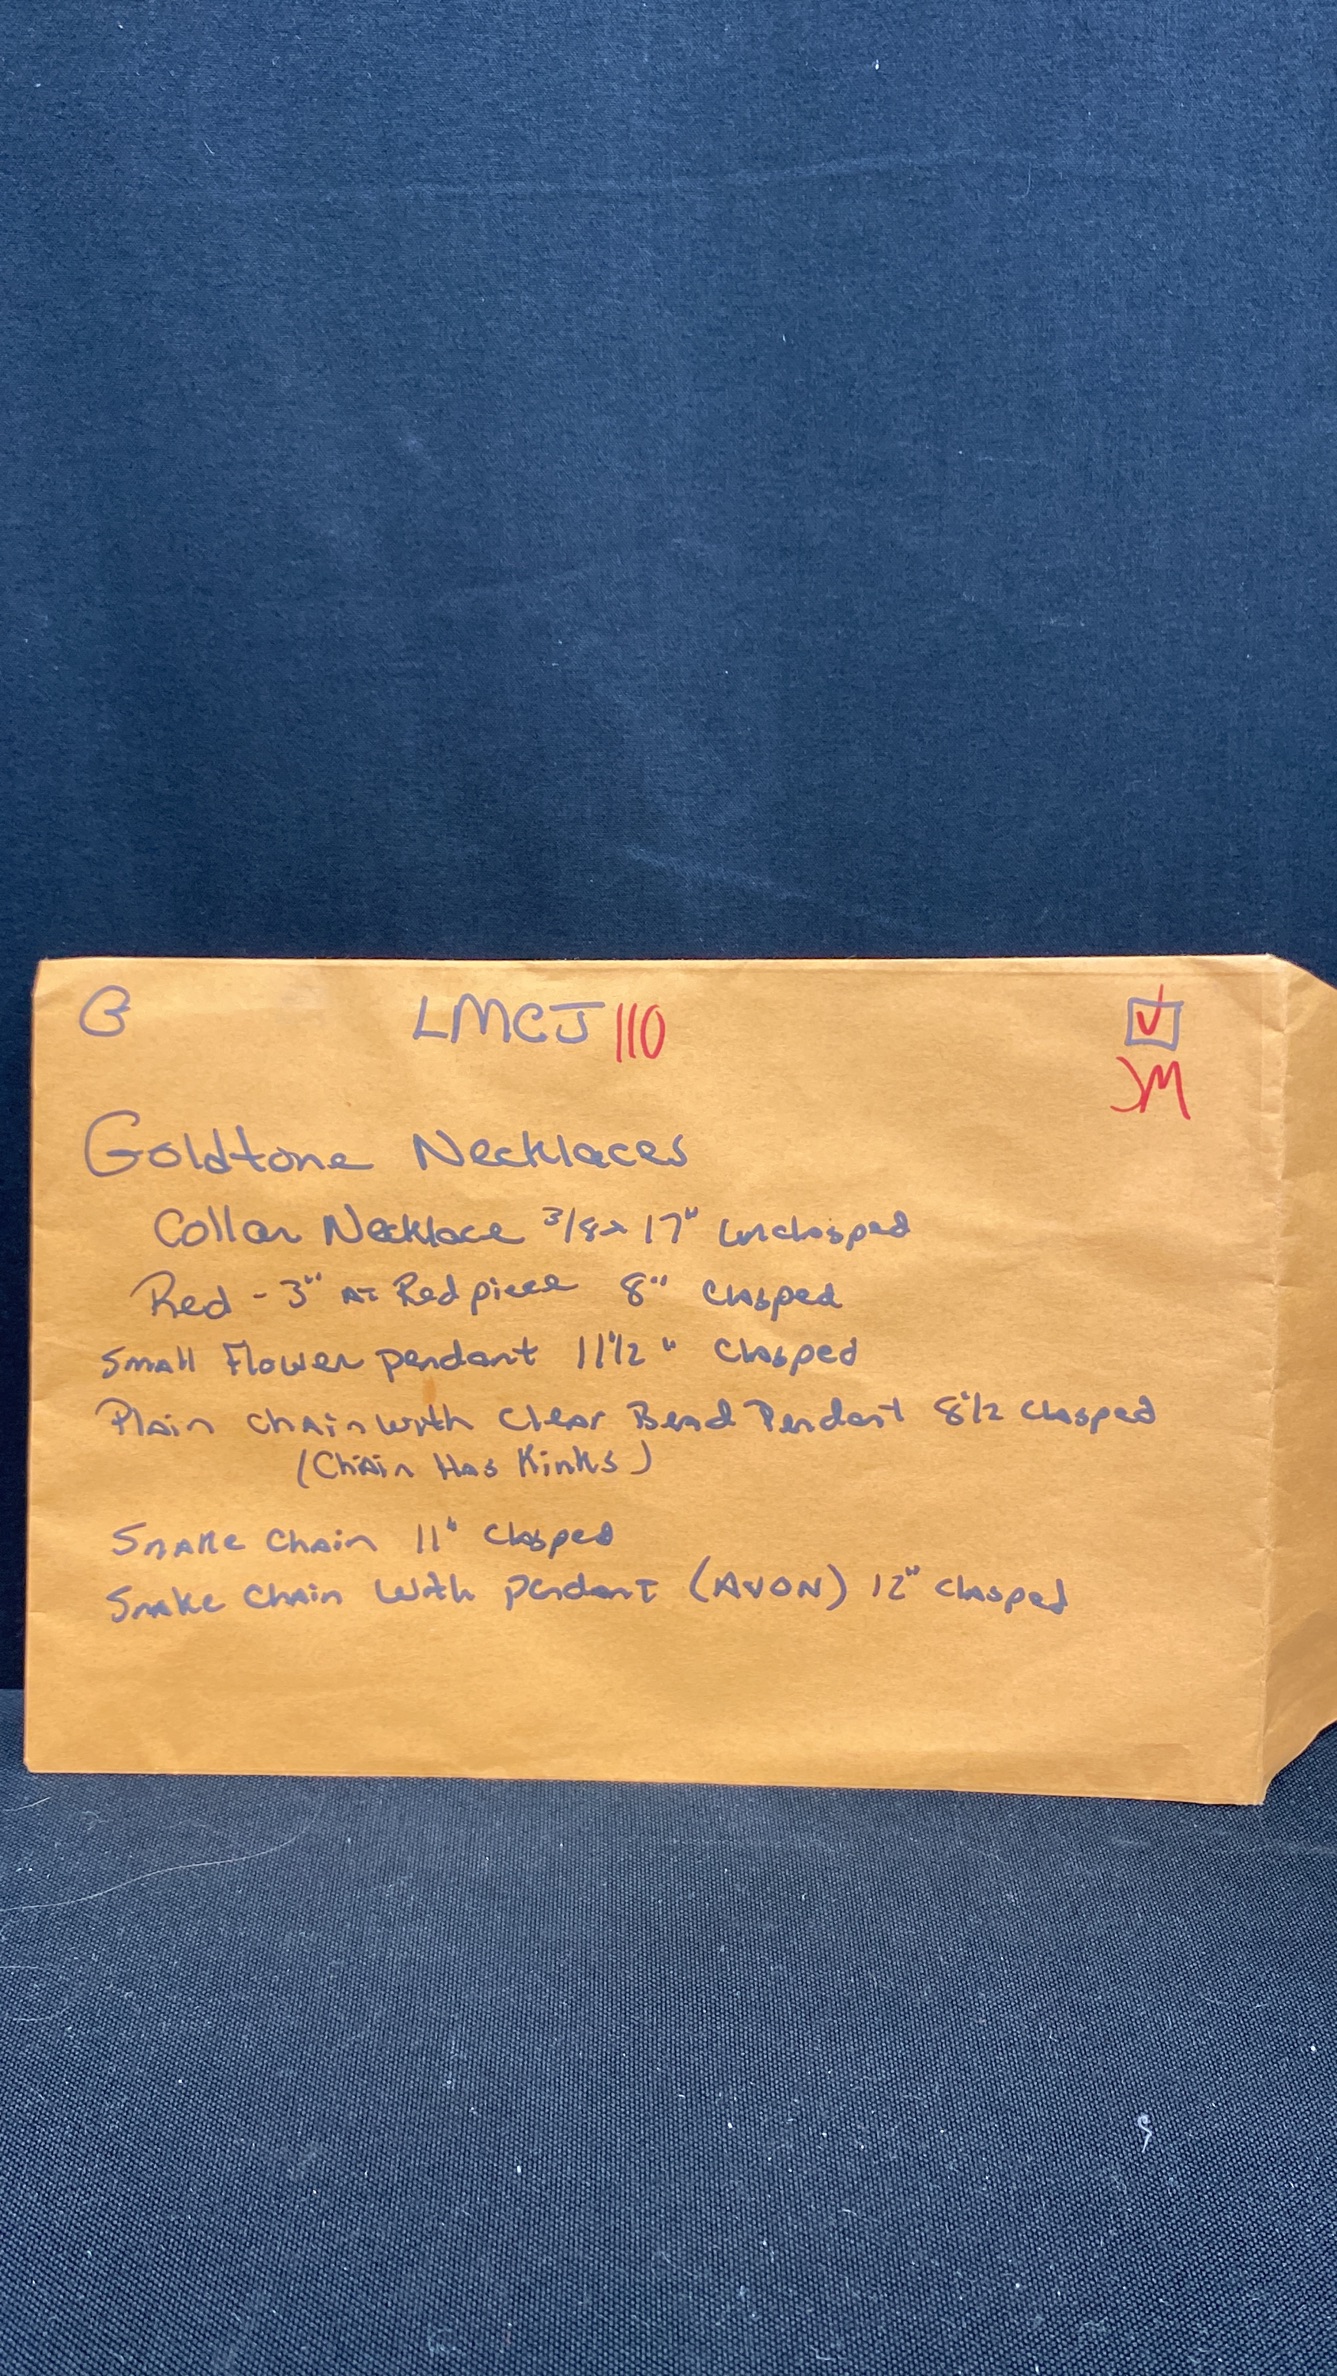 G LMCJ 110
JM
Goldtone Necklaces
Collar Necklace 3/8 x 17" unclasped
Red - 3" AT Red piece 8" clasped
Small Flower pendant 11 1/2" clasped
Plain chain with Clear Bead Pendant 8 1/2" clasped
(Chain Has Kinks)
Snake Chain 11" clasped
Snake Chain with pendant (AVON) 12" clasped